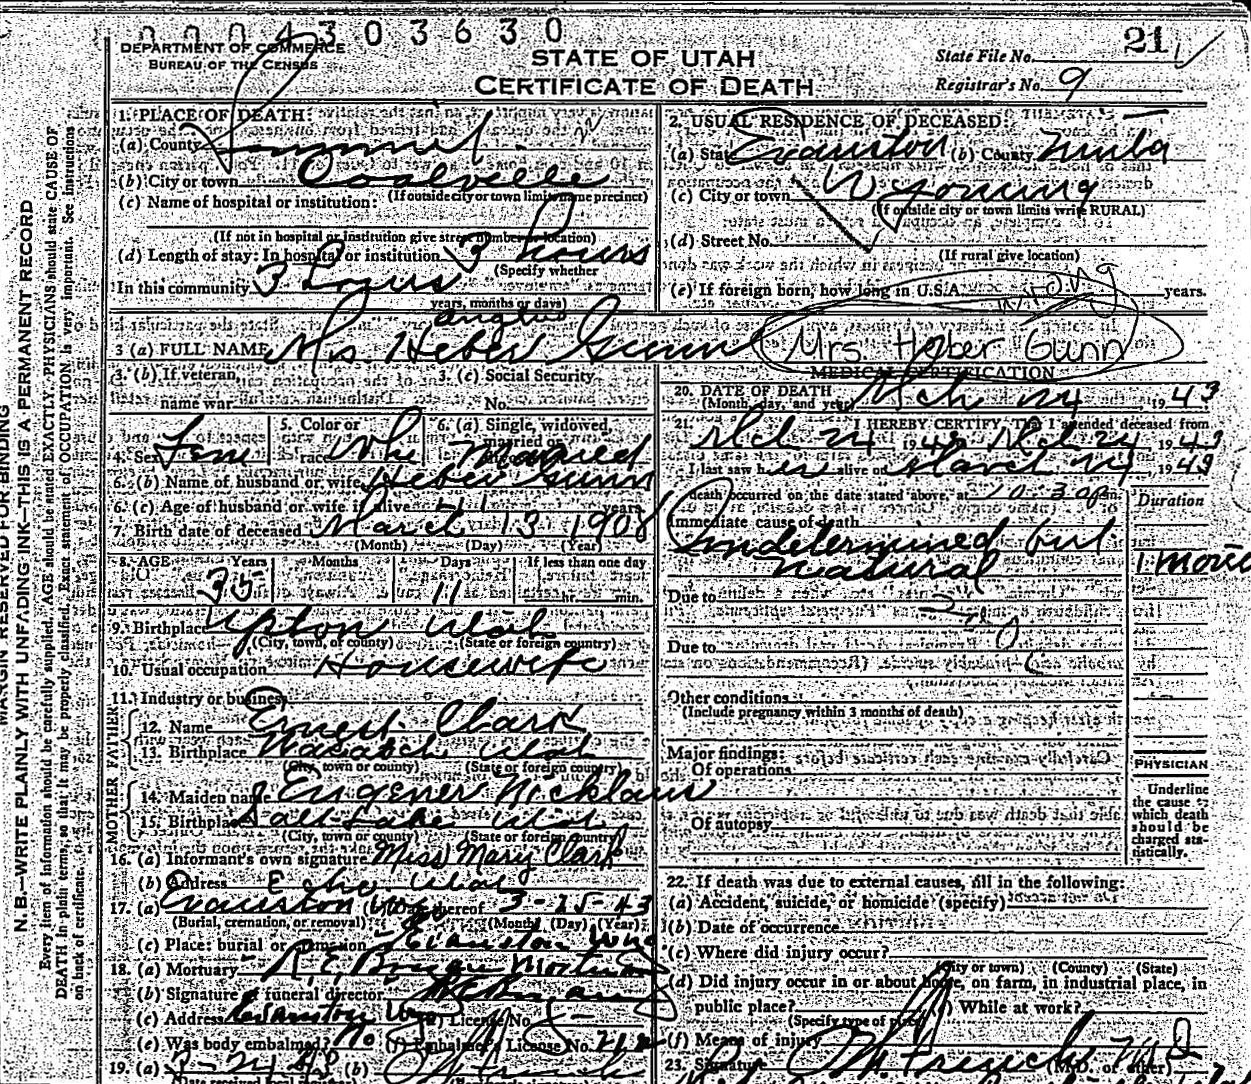 0004303630
21
DEPARTMENT OF COMMERCE
BUREAU OF THE CENSUS
STATE OF UTAH
CERTIFICATE OF DEATH
State File No.
Registrar's No. 9
MARGIN RESERVED FOR BINDING
N. B.—WRITE PLAINLY WITH UNFADING INK—THIS IS A PERMANENT RECORD
Every item of information should be carefully supplied. AGE should be stated EXACTLY. PHYSICIANS should state CAUSE OF
DEATH in plain terms, so that it may be properly classified. Exact statement of OCCUPATION is very important. See instructions
on back of certificate.
1. PLACE OF DEATH:
(a) County Summit
(b) City or town Coalville
(If outside city or town limits name precinct)
(c) Name of hospital or institution:
(If not in hospital or institution give street number or location)
(d) Length of stay: In hospital or institution 3 hours
(Specify whether
In this community 3 hours
years, months or days)
2. USUAL RESIDENCE OF DECEASED:
(a) State Evanston (b) County Uinta
(c) City or town Wyoming
(If outside city or town limits write RURAL)
(d) Street No.
(If rural give location)
(e) If foreign born, how long in U.S.A. years.
3 (a) FULL NAME Mrs. Heber Gunn
Mrs Heber Gunn
3. (b) If veteran, name war
3. (c) Social Security No.
4. Sex Fem
5. Color or race Whi
6. (a) Single, widowed, married or Married
6. (b) Name of husband or wife Heber Gunn
6. (c) Age of husband or wife if alive years
7. Birth date of deceased March 13 1908
(Month) (Day) (Year)
8. AGE Years 35 Months Days 11 If less than one day hr. min.
9. Birthplace Upton Utah
(City, town, or county) (State or foreign country)
10. Usual occupation Housewife
11. Industry or business
FATHER
12. Name Ernest Clark
13. Birthplace Wasatch Utah
(City, town or county) (State or foreign country)
MOTHER
14. Maiden name Nicklaus
15. Birthplace Salt Lake Utah
(City, town or county) (State or foreign country)
16. (a) Informant's own signature Miss Mary Clark
(b) Address Echo Utah
17. (a) Evanston Wyo thereof 3-25-43
(Burial, cremation, or removal) (Month) (Day) (Year)
(c) Place: burial or cremation Evanston Wyo
18. (a) Mortuary
(b) Signature of funeral director
(c) Address Evanston Wyo (d) License No.
(e) Was body embalmed? No (f) Embalmer's License No.
19. (a) 3-24-43 (b)
MEDICAL CERTIFICATION
20. DATE OF DEATH
(Month, day, and year) Mch 24 1943
21. I HEREBY CERTIFY, That I attended deceased from
Mch 24 1943 to Mch 24 1943
I last saw her alive on March 24 1943
death occurred on the date stated above, at 10:30 pm.
Duration
Immediate cause of death
Undetermined but
natural
Due to
Due to
Other conditions
(Include pregnancy within 3 months of death)
Major findings:
Of operations
Of autopsy
PHYSICIAN
Underline
the cause to
which death
should be
charged sta-
tistically.
22. If death was due to external causes, fill in the following:
(a) Accident, suicide, or homicide (specify)
(b) Date of occurrence
(c) Where did injury occur?
(City or town) (County) (State)
(d) Did injury occur in or about home, on farm, in industrial place, in
public place? While at work?
(Specify type of place)
(f) Means of injury
23. Signature
(M.D. or other)